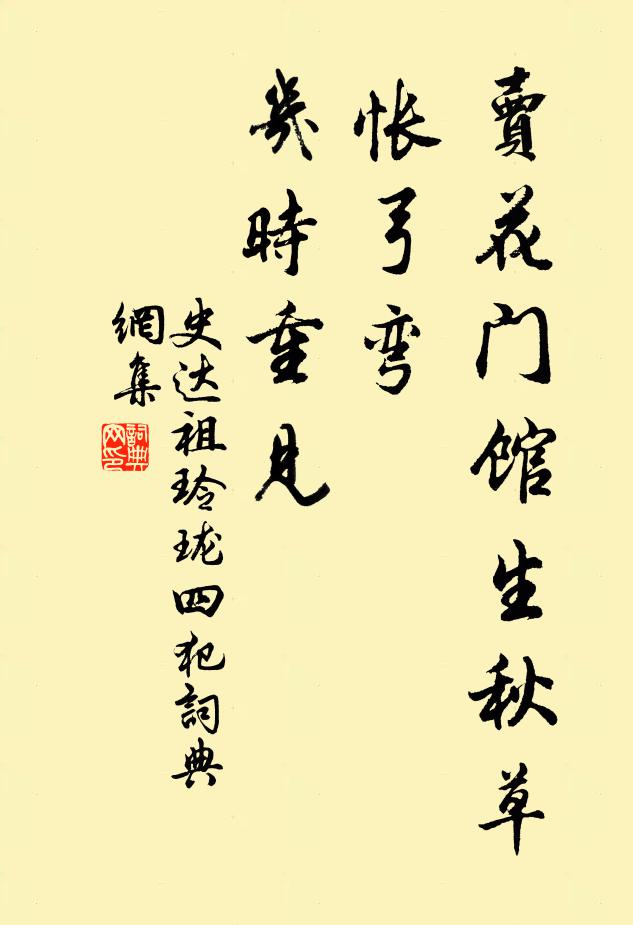 賣花门馆生秋草
怅弓弯
幾時重见
史达祖玲珑四犯詞典
網集
詞典
网印